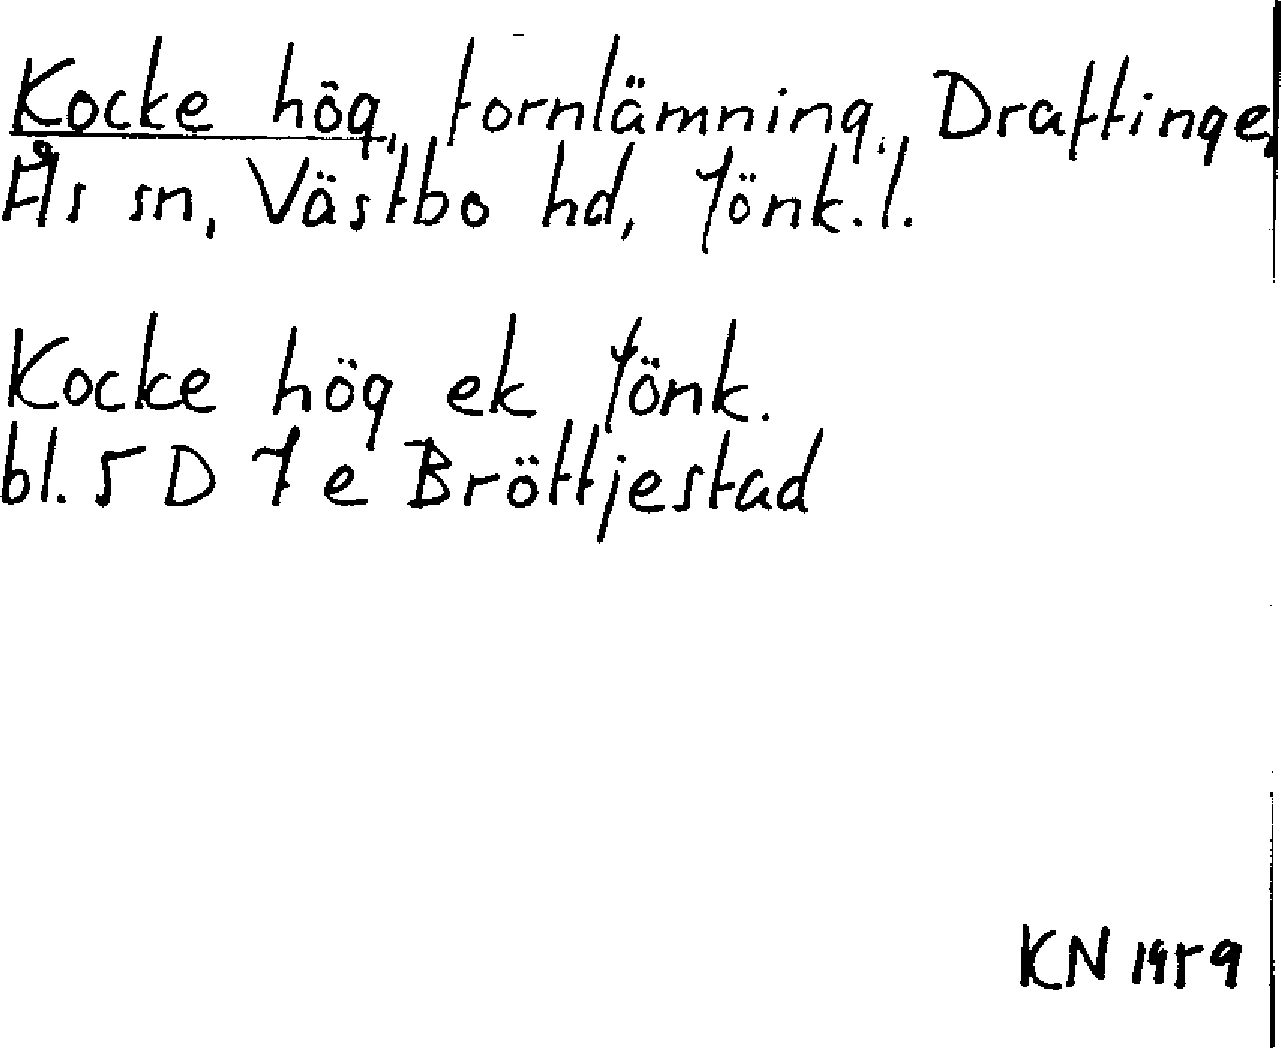 Kocke hög, fornlämning, Draftinge,
Ås sn, Västbo hd, Jönk.l.
Kocke hög ek Jönk.
bl. 5 D 7 e Bröttjestad
KN 1959